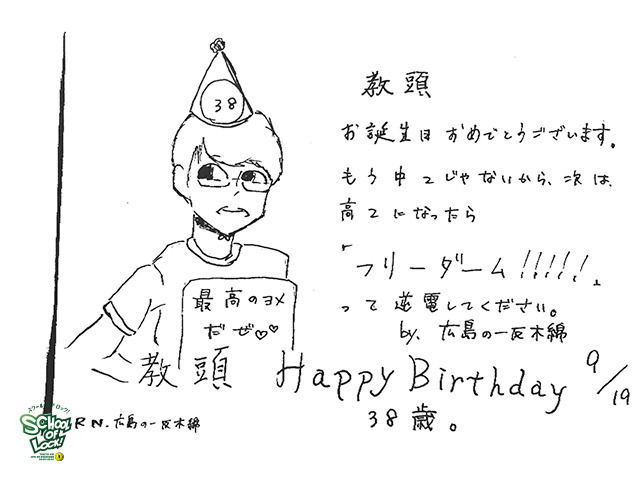 38
教頭
お誕生日おめでとうございます。
もう中2じゃないから、次は、
高2になったら
「フリーダーム!!!!!」
って逆電してください。
by. 広島の一反木綿
最高のヨメ
だぜ♡♡
教頭 Happy Birthday 9/19
38歳。
SCHOOL OF LOCK!
RN. 広島の一反木綿